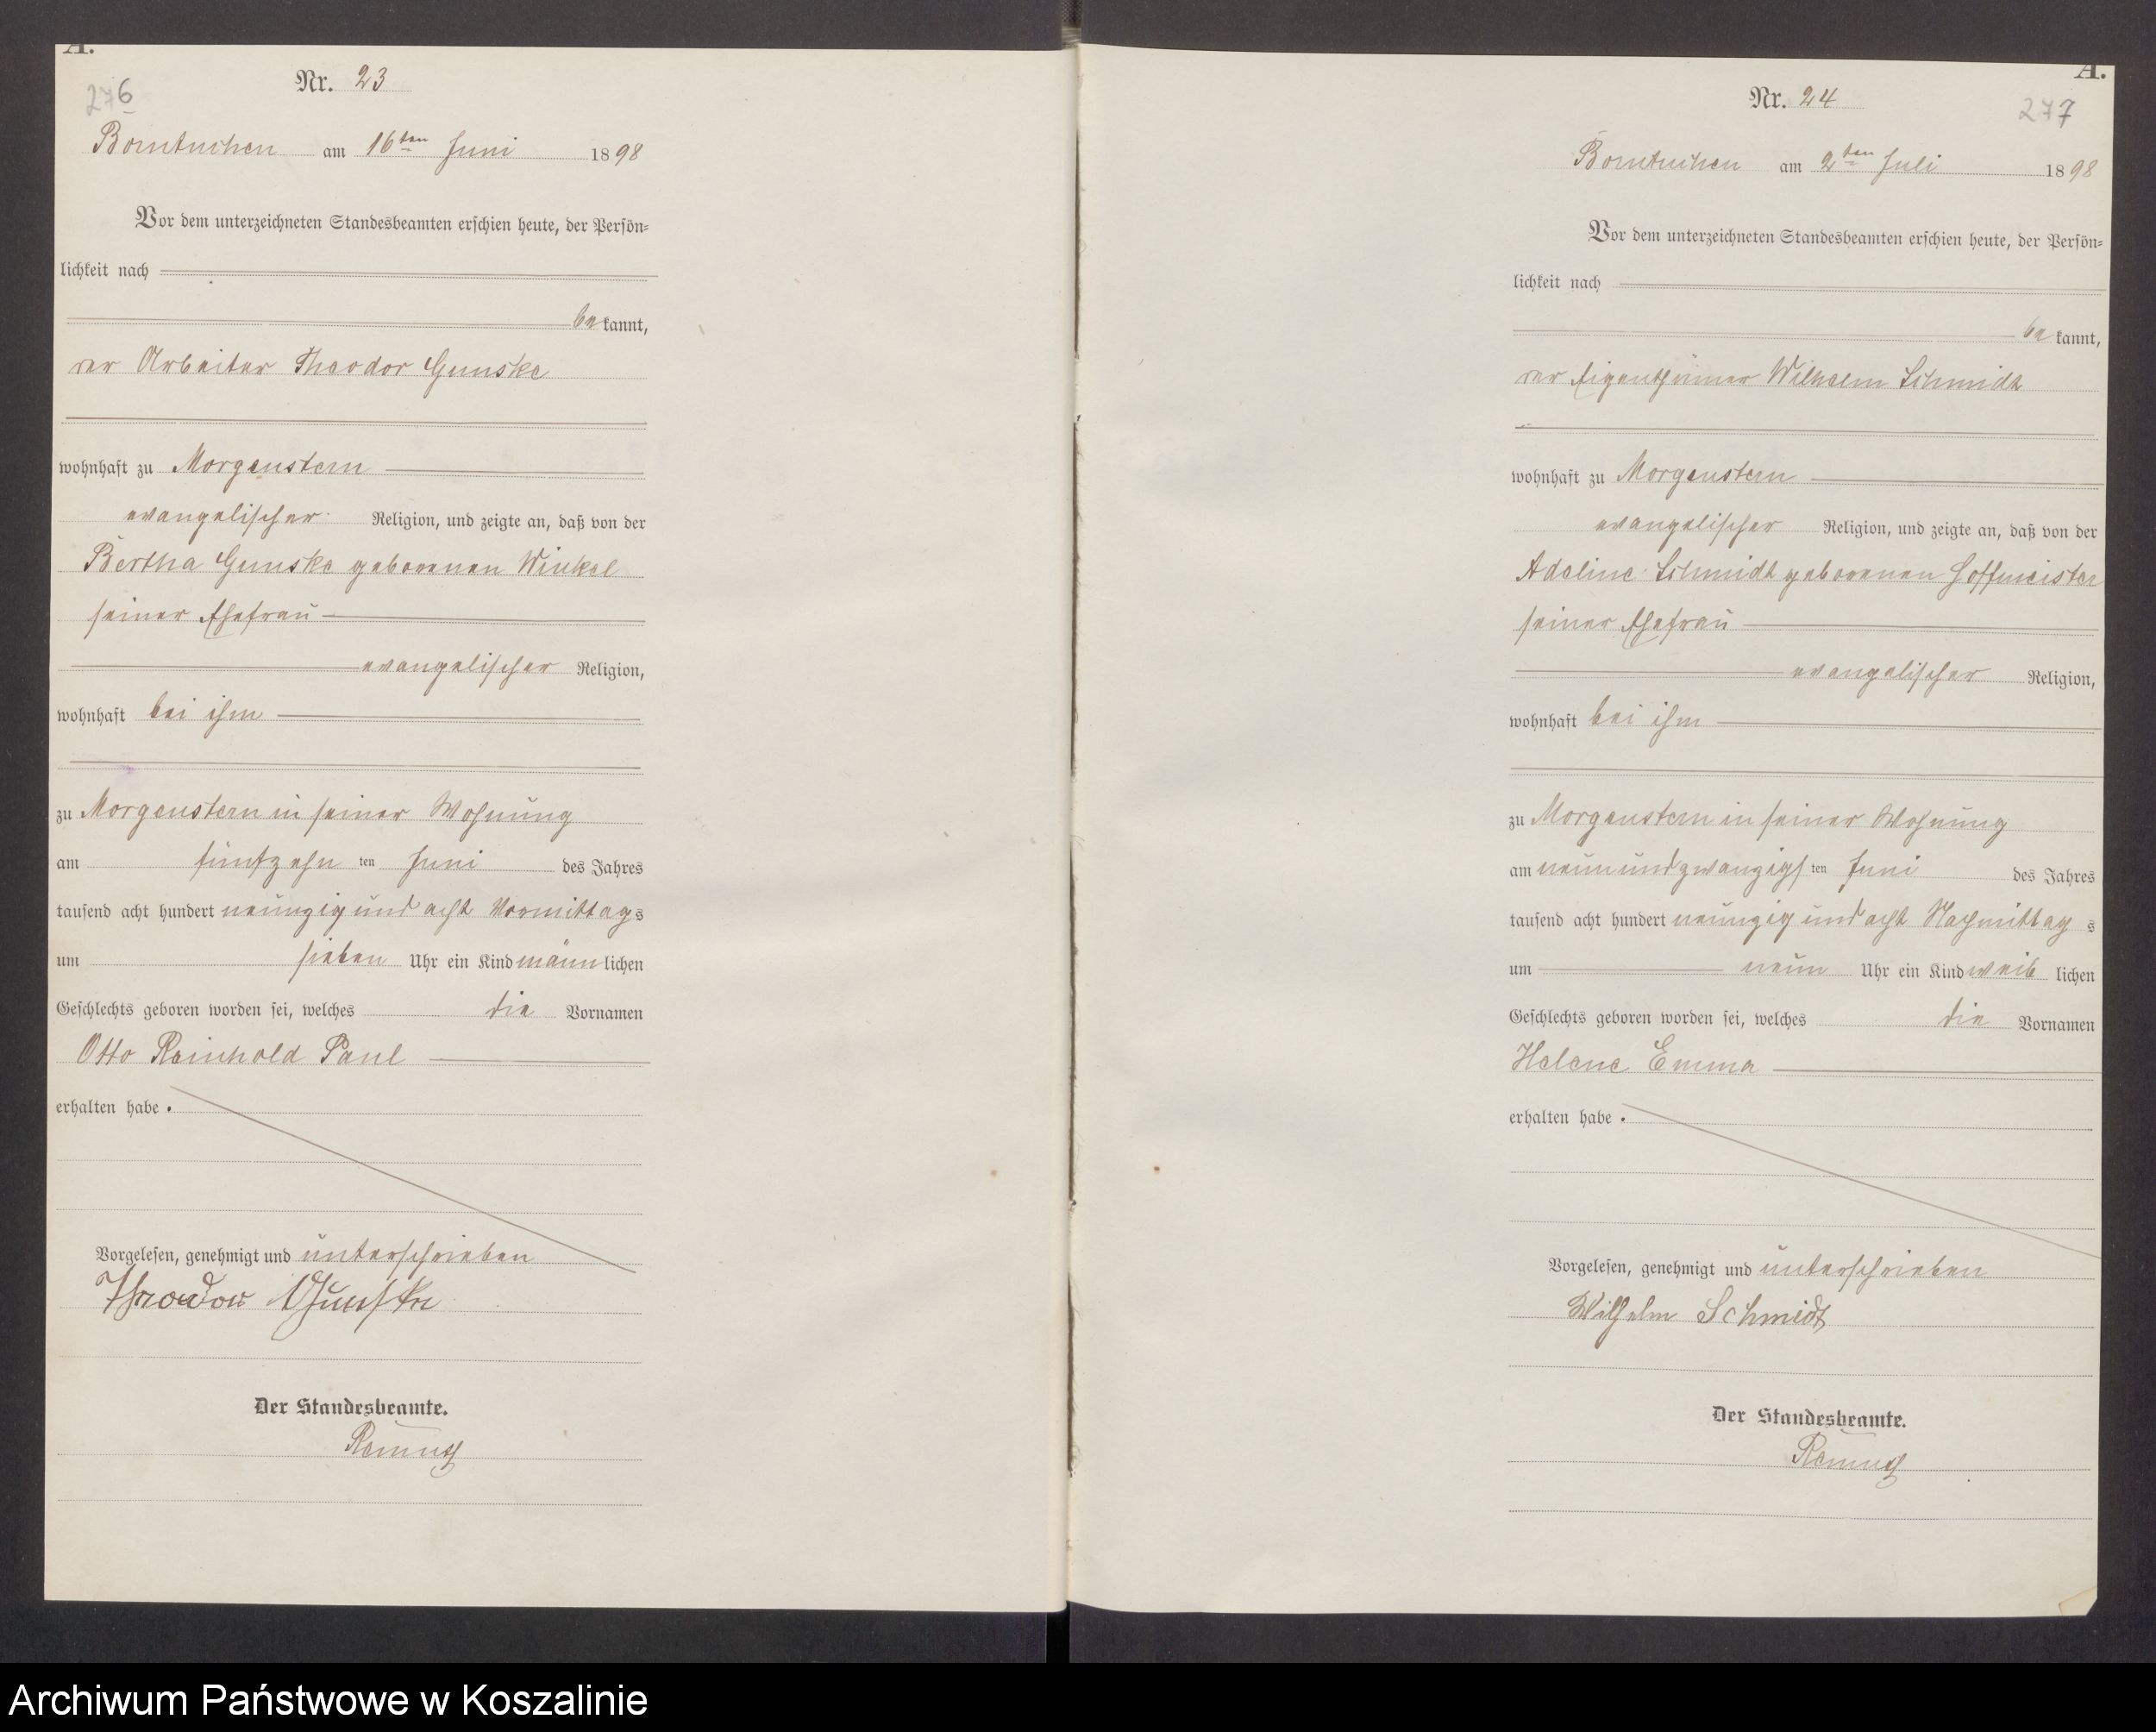 A.
276
Nr. 23
Borntuchen am 16ten Juni 1898
Vor dem unterzeichneten Standesbeamten erschien heute, der Persön-
lichkeit nach
bekannt,
der Arbeiter Theodor Gunske
wohnhaft zu Morgenstern
evangelischer Religion, und zeigte an, daß von der
Bertha Gunske geborenen Winkel
seiner Ehefrau
evangelischer Religion,
wohnhaft bei ihm
zu Morgenstern in seiner Wohnung
am fünfzehnten Juni des Jahres
tausend acht hundert neunzig und acht Vormittags
um sieben Uhr ein Kind männlichen
Geschlechts geboren worden sei, welches die Vornamen
Otto Reinhold Paul
erhalten habe.
Vorgelesen, genehmigt und unterschrieben
Theodor Gunske
Der Standesbeamte.
A.
277
Nr. 24
Borntuchen am 2ten Juli 1898
Vor dem unterzeichneten Standesbeamten erschien heute, der Persön-
lichkeit nach
bekannt,
der Eigenthümer Wilhelm Schmidt
wohnhaft zu Morgenstern
evangelischer Religion, und zeigte an, daß von der
Adeline Schmidt geborenen Hoffmeister
seiner Ehefrau
evangelischer Religion,
wohnhaft bei ihm
zu Morgenstern in seiner Wohnung
am neunundzwanzigsten Juni des Jahres
tausend acht hundert neunzig und acht Nachmittags
um neun Uhr ein Kind weiblichen
Geschlechts geboren worden sei, welches die Vornamen
Helene Emma
erhalten habe.
Vorgelesen, genehmigt und unterschrieben
Wilhelm Schmidt
Der Standesbeamte.
Archiwum Państwowe w Koszalinie